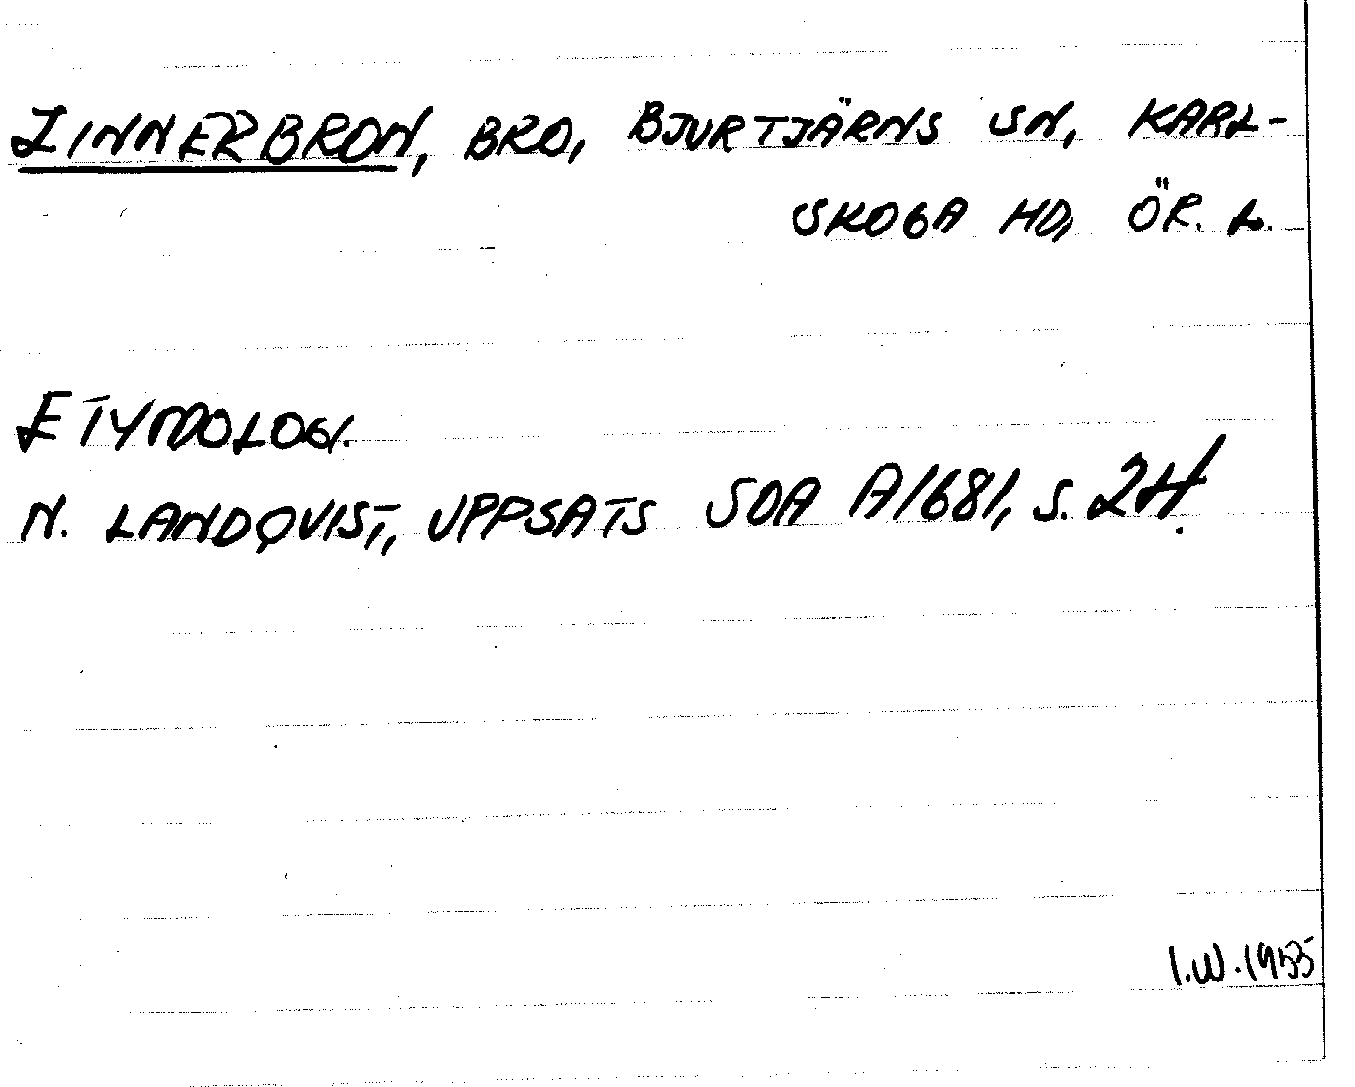 ZINNERBRON, BRO, BJURTJÄRNS SN, KARL-
SKOGA HD, ÖR. L.
ETYMOLOGI.
N. LANDQVIST, UPPSATS SOA A1681, S. 24.
I.W. 1955